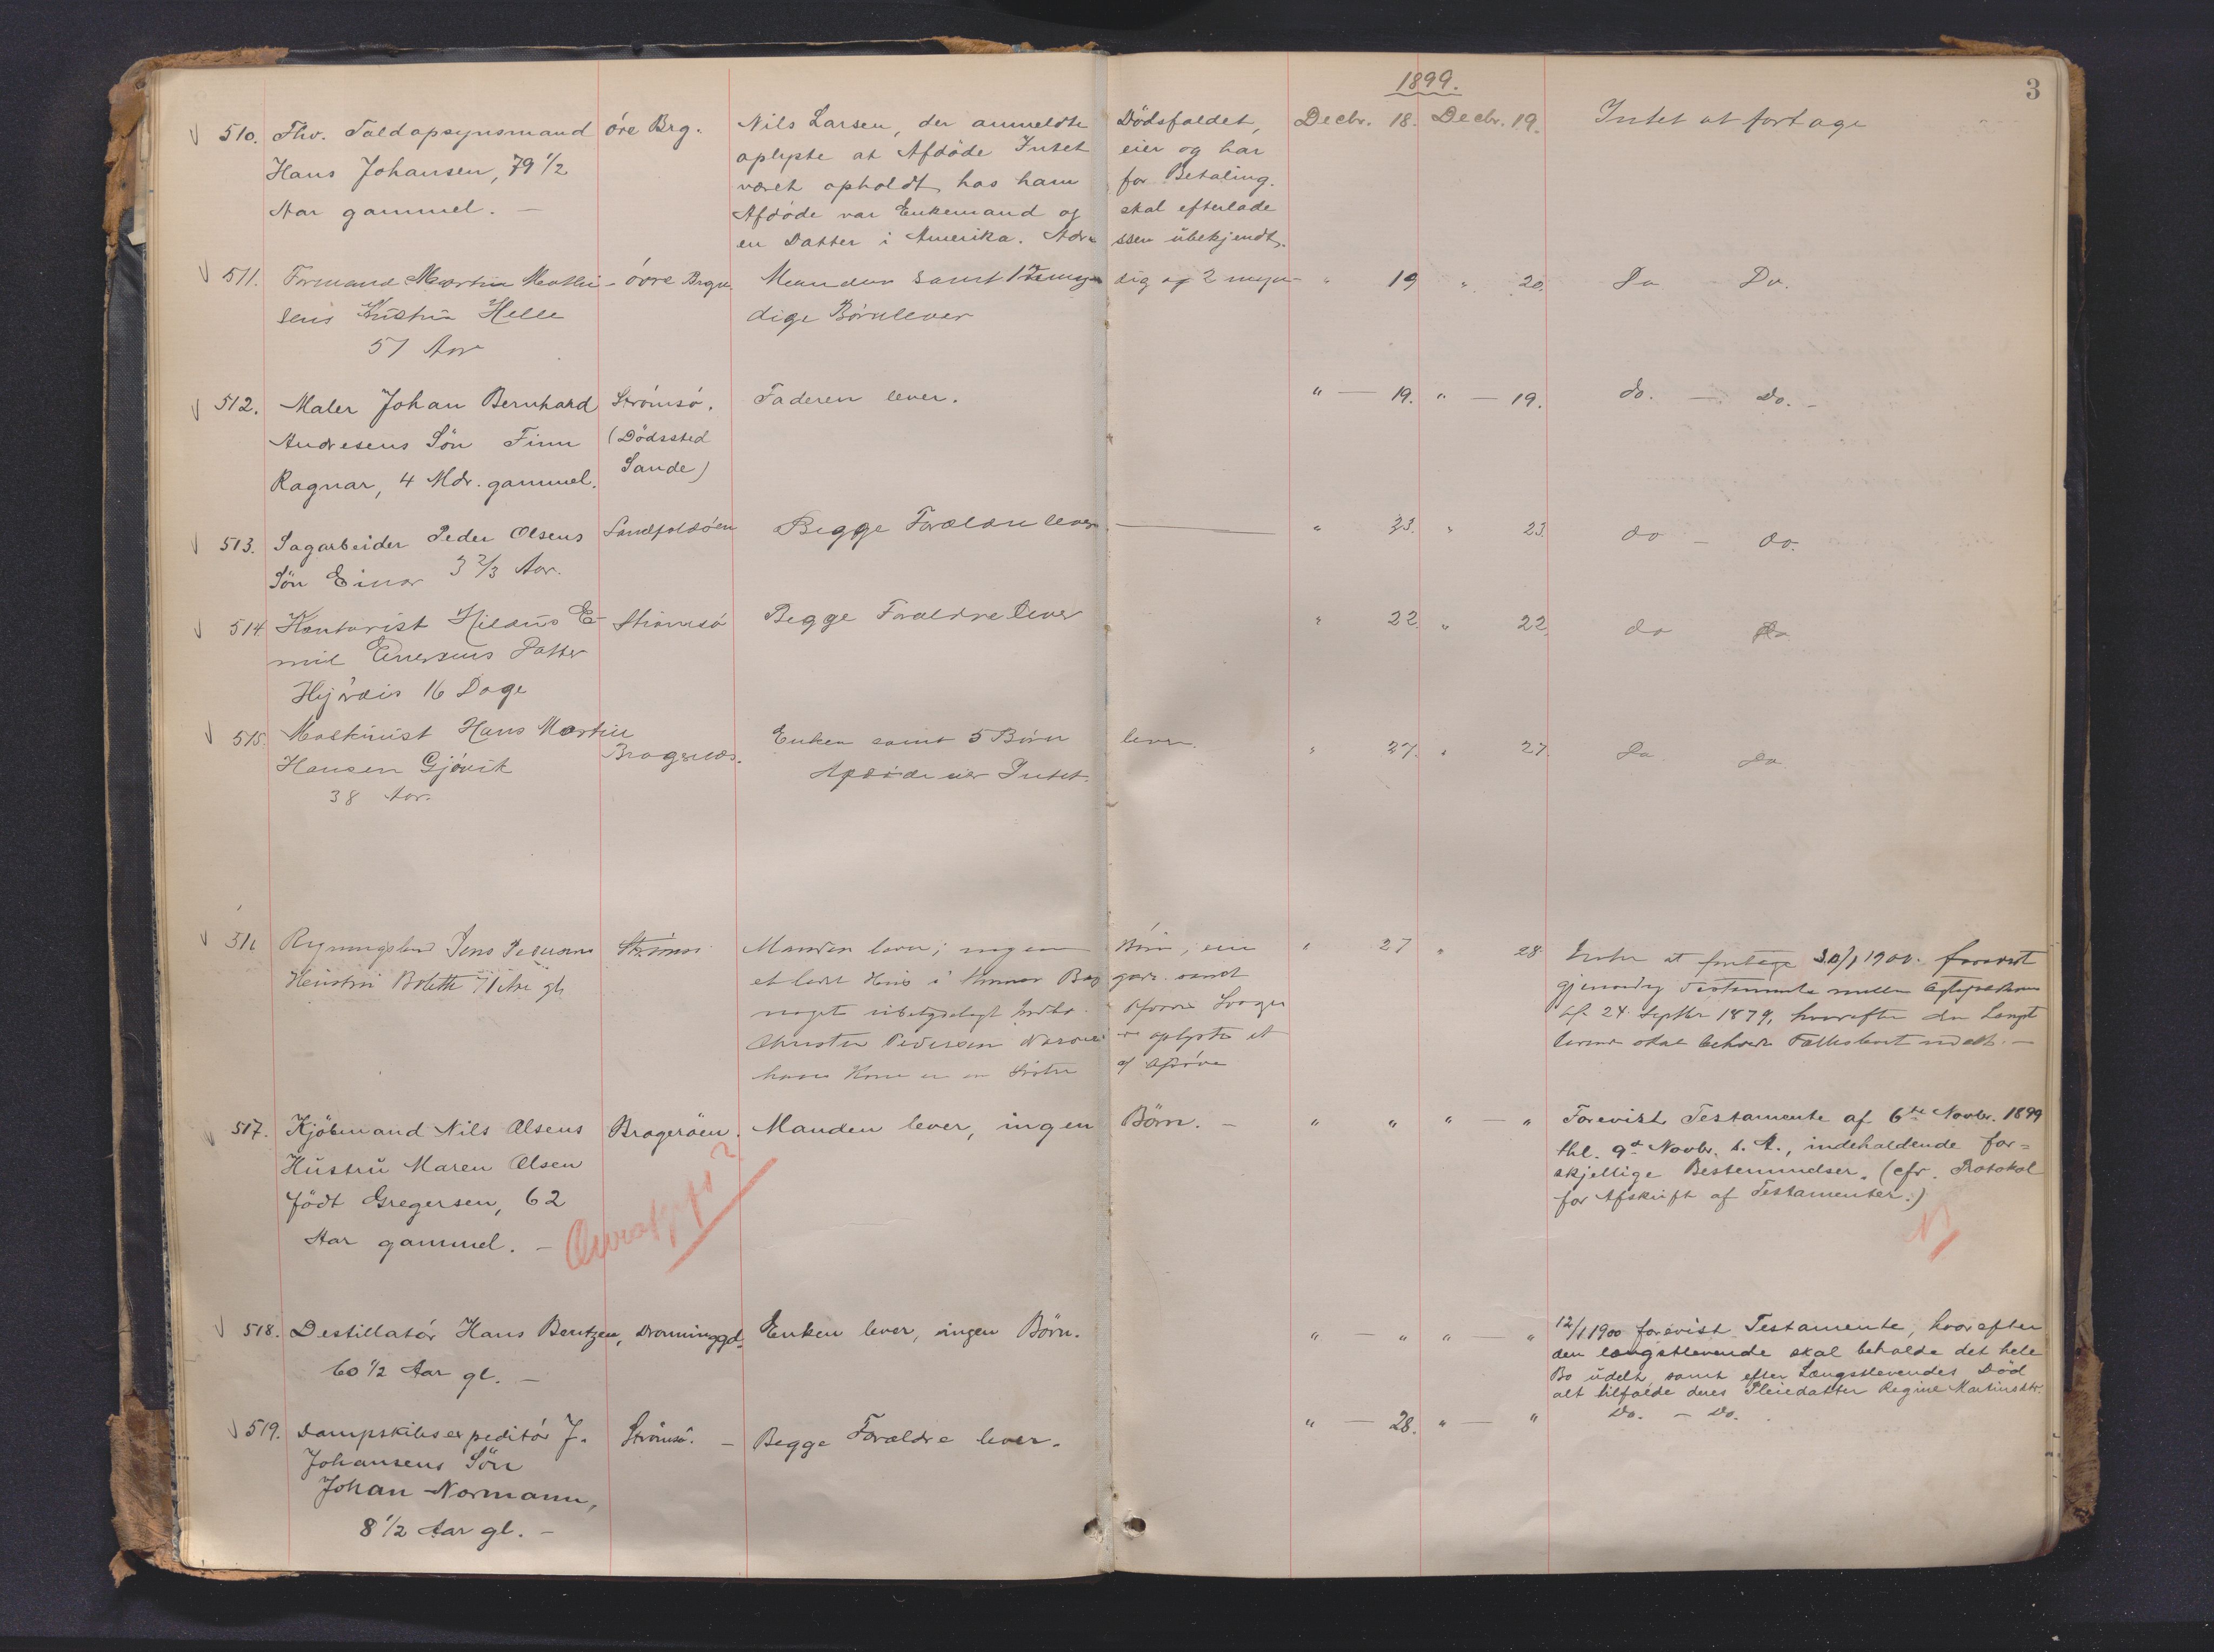 1899.
3
510. Fhv. Toldopsynsmand öre Brg. Nils Larsen, der anmeldte Dödsfaldet, Decbr. 18. Decbr. 19. Intet at foretage
Hans Johansen, 79 1/2 oplyste at Afdöde Intet eier og har
Aar gammel. — været opholdt hos ham for Betaling.
Afdöde var Enkemand og skal efterlade
en Datter i Amerika. Adre ssen ubekjendt.
511. Formand Martin Mathi- övre Brgn. Manden samt 1 umyn dig og 2 myn- " 19 " 20. Do Do.
sens Hustru Helle dige Börn lever
51 Aar
512. Maler Johan Bernhard Strömsö. Faderen lever. " — 19. " — 19. do. — Do. -
Andresens Sön Finn (Dödssted
Ragnar, 4 Mdr. gammel. Sande)
513. Sagarbeider Peder Olsens Begge Forældre lever. " 23. " 23. do — do.
Sön Einar 3 2/3 Aar.
514 Kontorist Hilarius E- Strömsö Begge Forældre lever " 22. " 22. do do
mil Datter
Hjördis 16 Dage
515. Maskinist Hans Martin Bragernes. Enken samt 5 Börn lever. " 27. " 27. Do do
Hansen Gjövik Afdöde eier Intet.
38 Aar.
516 Jens Pedersens Strömsö Manden lever; ingen Börn, eier " 27 " 28. Intet at foretage 30/1 1900. forevist
Hustru Bolette 71 Aar gl. et lidet Hus i samt gjensidig Testamente mellem Ægtefolkene
noget ubetydeligt Indbo. Svoger af 24. Septbr 1879, hvorefter den Længst
Pedersen oplyste at levende skal beholde Fællesboet udelt. —
hans Kone er en Söster af Afdöde
517. Kjöbmand Nils Olsens Brageröen. Manden lever, ingen Börn. — " " " — " Forevist Testamente af 6te Novbr. 1899
Hustru Maren Olsen thl. 9d Novbr. s. A., indeholdende for=
födt Gregersen, 62 skjellige Bestemmelser. (cfr. Protokol
Aar gammel. — for Afskrift af Testamenter.)
518. Destillatör Hans Bentzen, Dronninggd. Enken lever, ingen Börn. " — " " — " 12/1 1900 forevist Testamente, hvorefter
60 1/2 Aar gl. — den længstlevende skal beholde det hele
Bo udelt, samt efter Længstlevendes Död
alt tilfalde deres Pleiedatter Regine Martinsdtr.
519. Dampskibsexpeditör J. Strömsö. — Begge Forældre lever. " — 28. " — " Do. — Do.
Johansens Sön
Johan Normann,
8 1/2 Aar gl. —